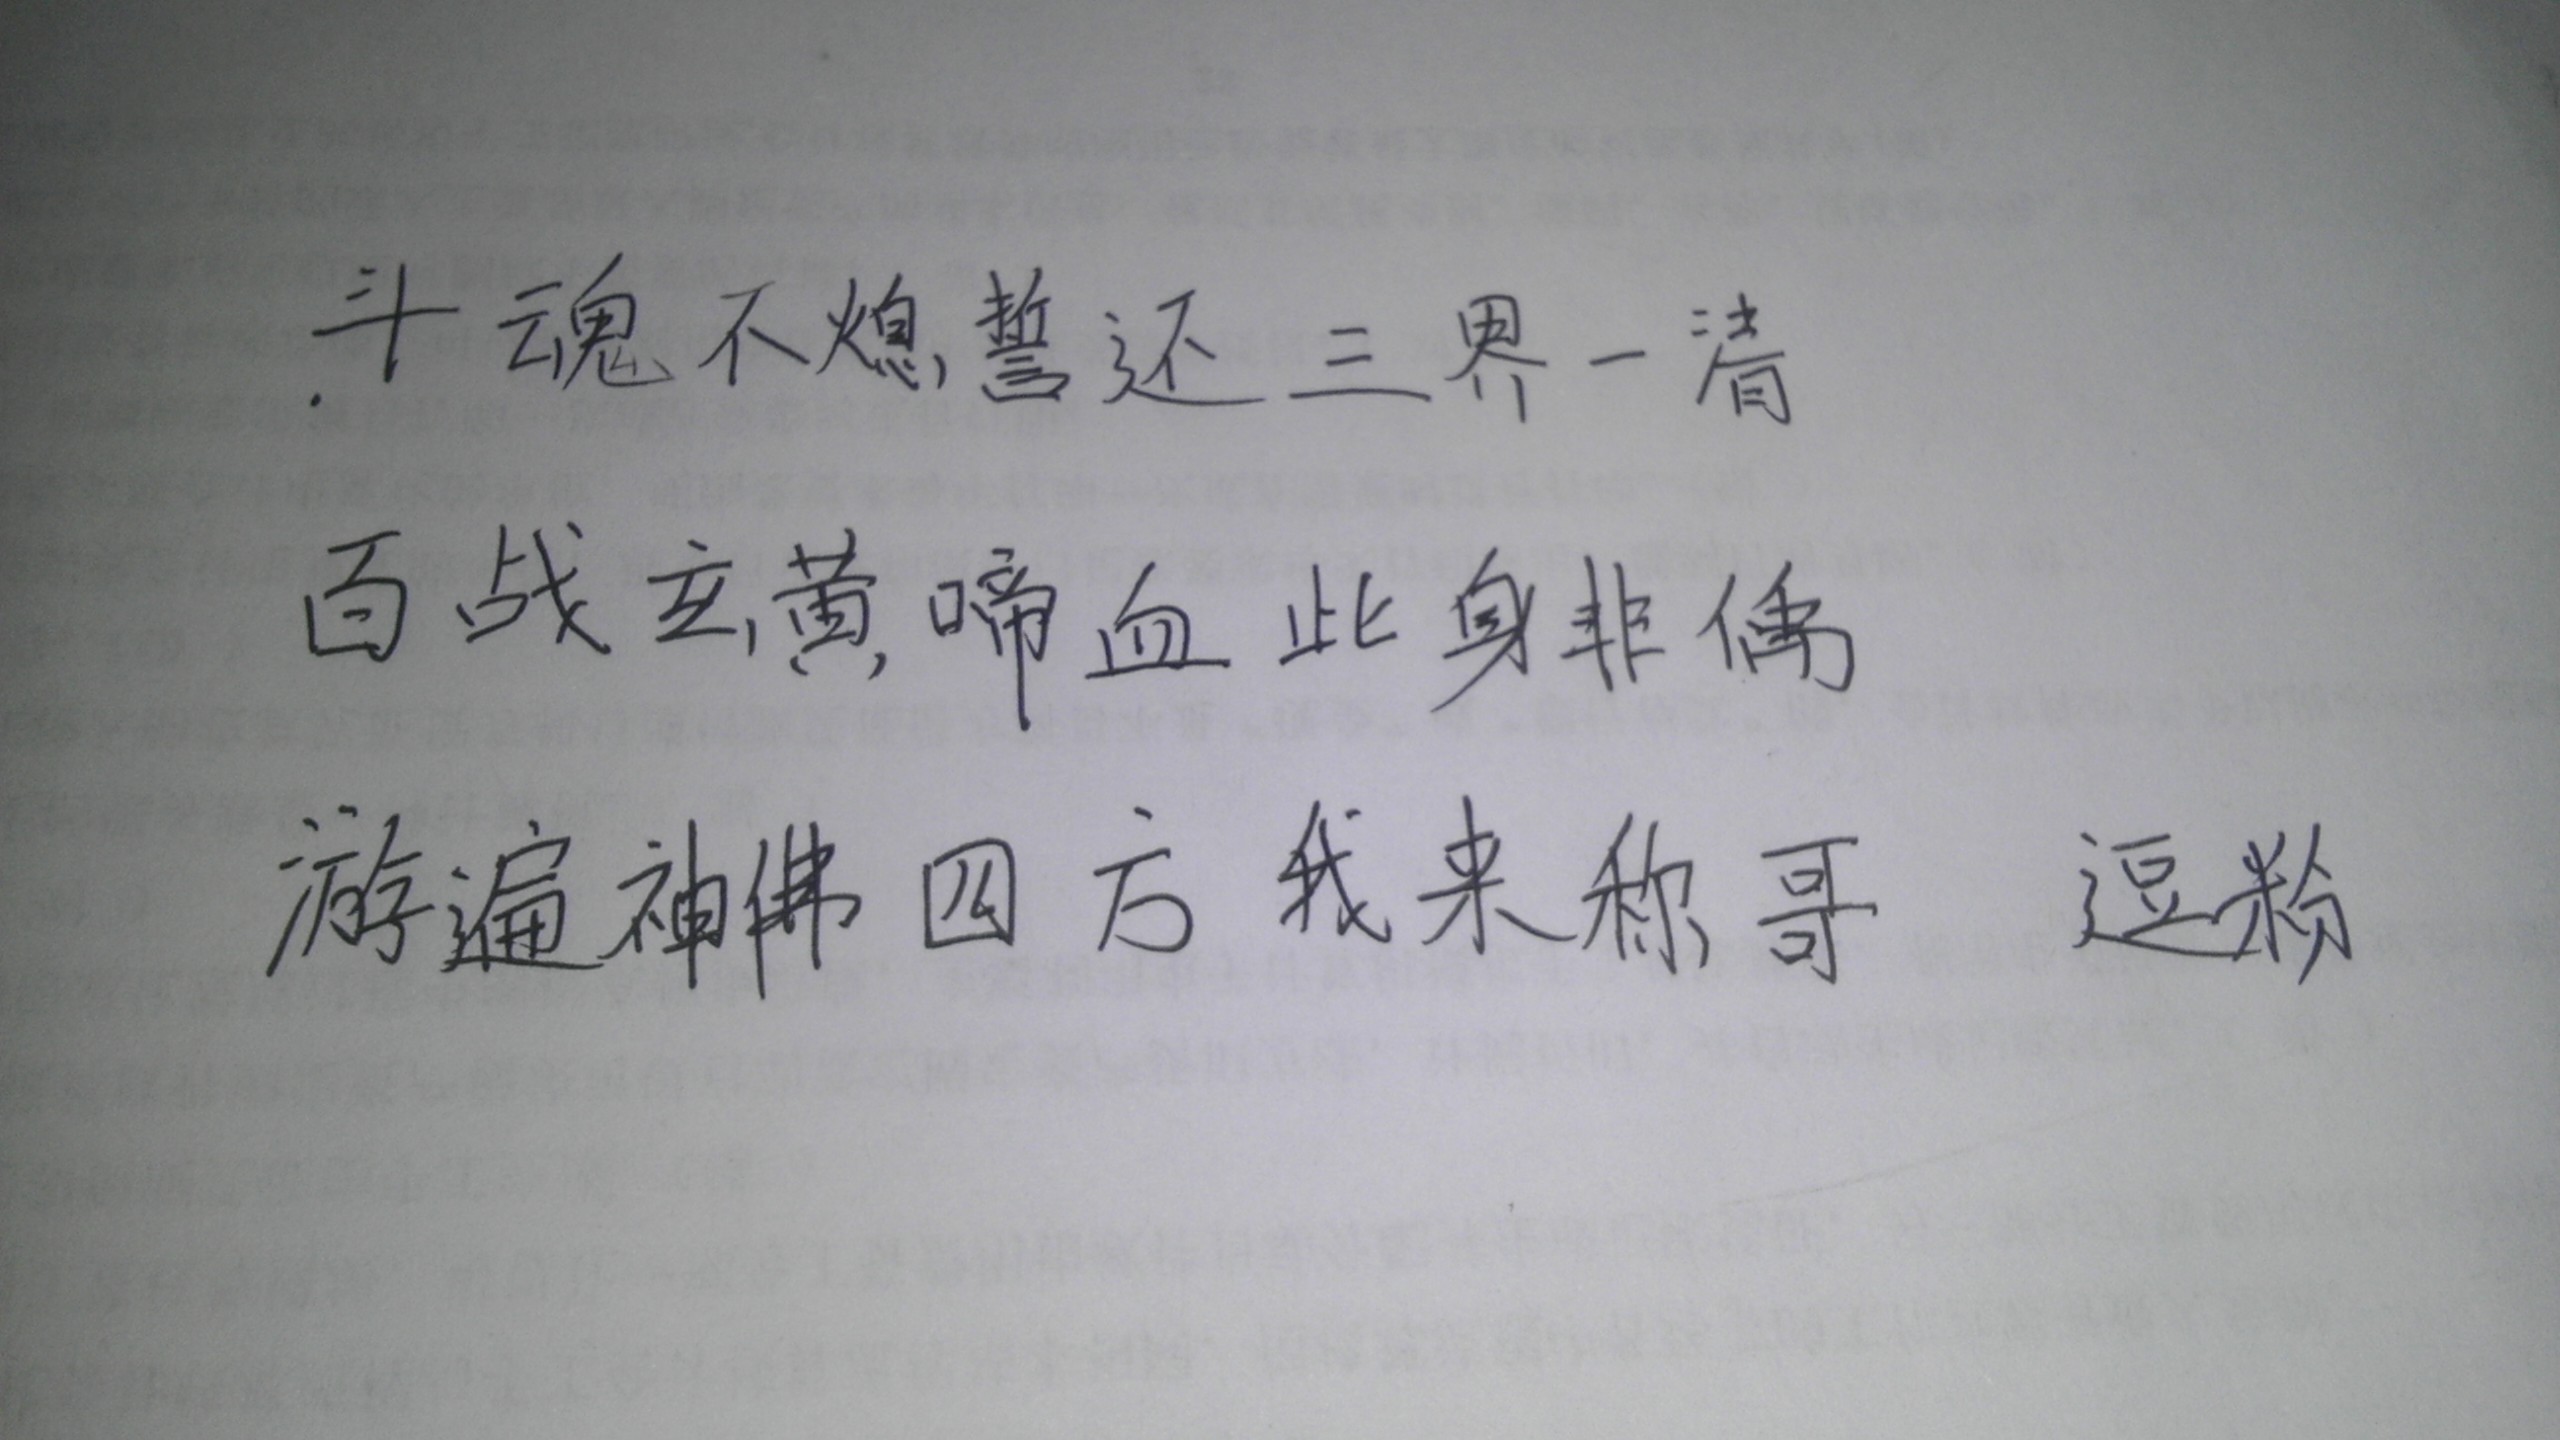 斗魂不熄誓还三界一清
百战玄黄啼血此身非偶
游遍神佛四方我来称哥 逗粉